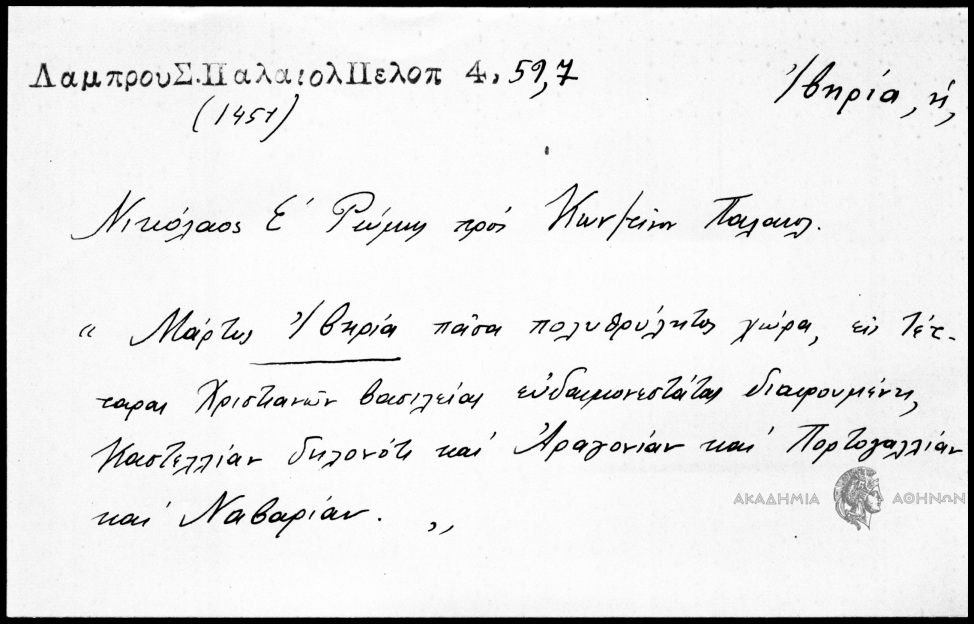 ΛαμπρουΣ.ΠαλαιολΠελοπ 4, 59,7
(1451)
Ἰβηρία, ἡ,
Νικόλαος Ε΄ Ρώμης πρός Κων/τῖνον Παλαιολ.
“ Μάρτυς Ἰβηρία πᾶσα πολυθρύλητος χώρα, εἰς τέτ-
ταρας Χριστιανῶν βασιλείας εὐδαιμονεστάτας διαιρουμένη,
Καστελλίαν δηλονότι καί Ἀραγονίαν καί Πορτογαλλίαν
καί Ναβαρίαν. „
ΑΚΑΔΗΜΙΑ ΑΘΗΝΩΝ